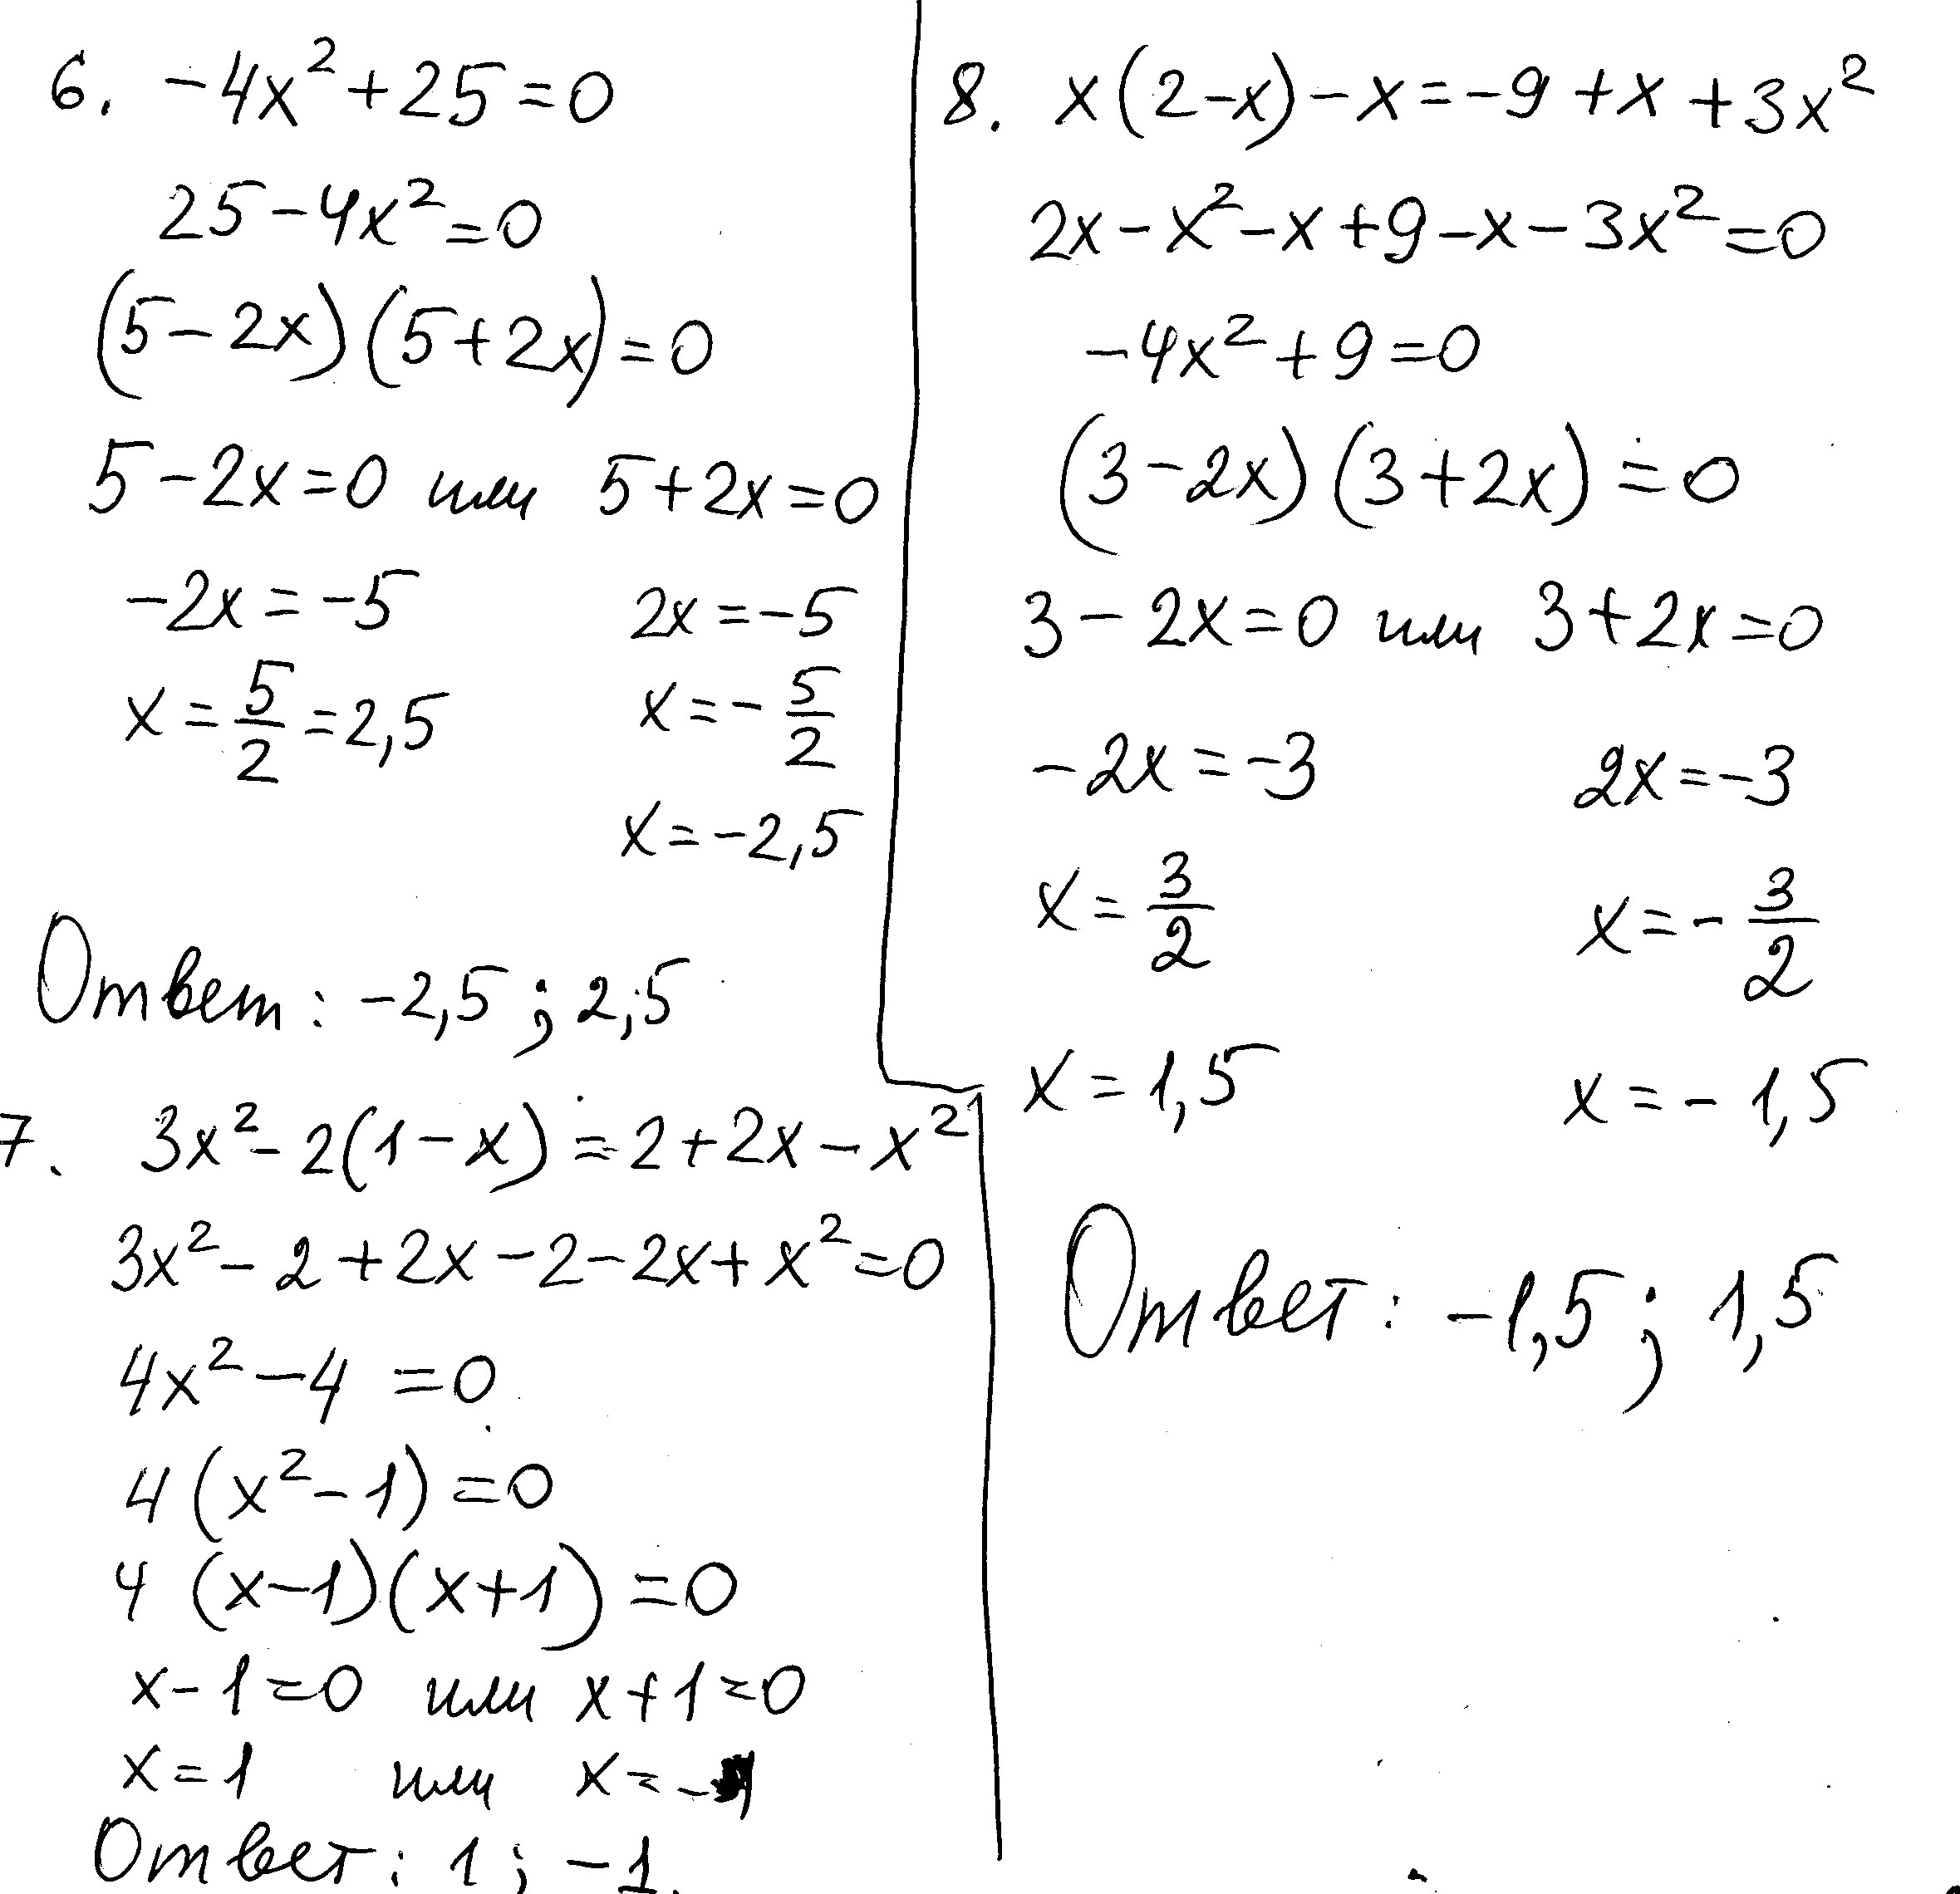 6. -4x² + 25 = 0
25 - 4x² = 0
(5 - 2x)(5 + 2x) = 0
5 - 2x = 0 или 5 + 2x = 0
-2x = -5 2x = -5
x = 5/2 = 2,5 x = - 5/2
x = -2,5
Ответ: -2,5; 2,5
7. 3x² - 2(1 - x) = 2 + 2x - x²
3x² - 2 + 2x - 2 - 2x + x² = 0
4x² - 4 = 0
4(x² - 1) = 0
4(x - 1)(x + 1) = 0
x - 1 = 0 или x + 1 = 0
x = 1 или x = -1
Ответ: 1; -1.
8. x(2 - x) - x = -9 + x + 3x²
2x - x² - x + 9 - x - 3x² = 0
-4x² + 9 = 0
(3 - 2x)(3 + 2x) = 0
3 - 2x = 0 или 3 + 2x = 0
-2x = -3 2x = -3
x = 3/2 x = - 3/2
x = 1,5 x = - 1,5
Ответ: -1,5; 1,5